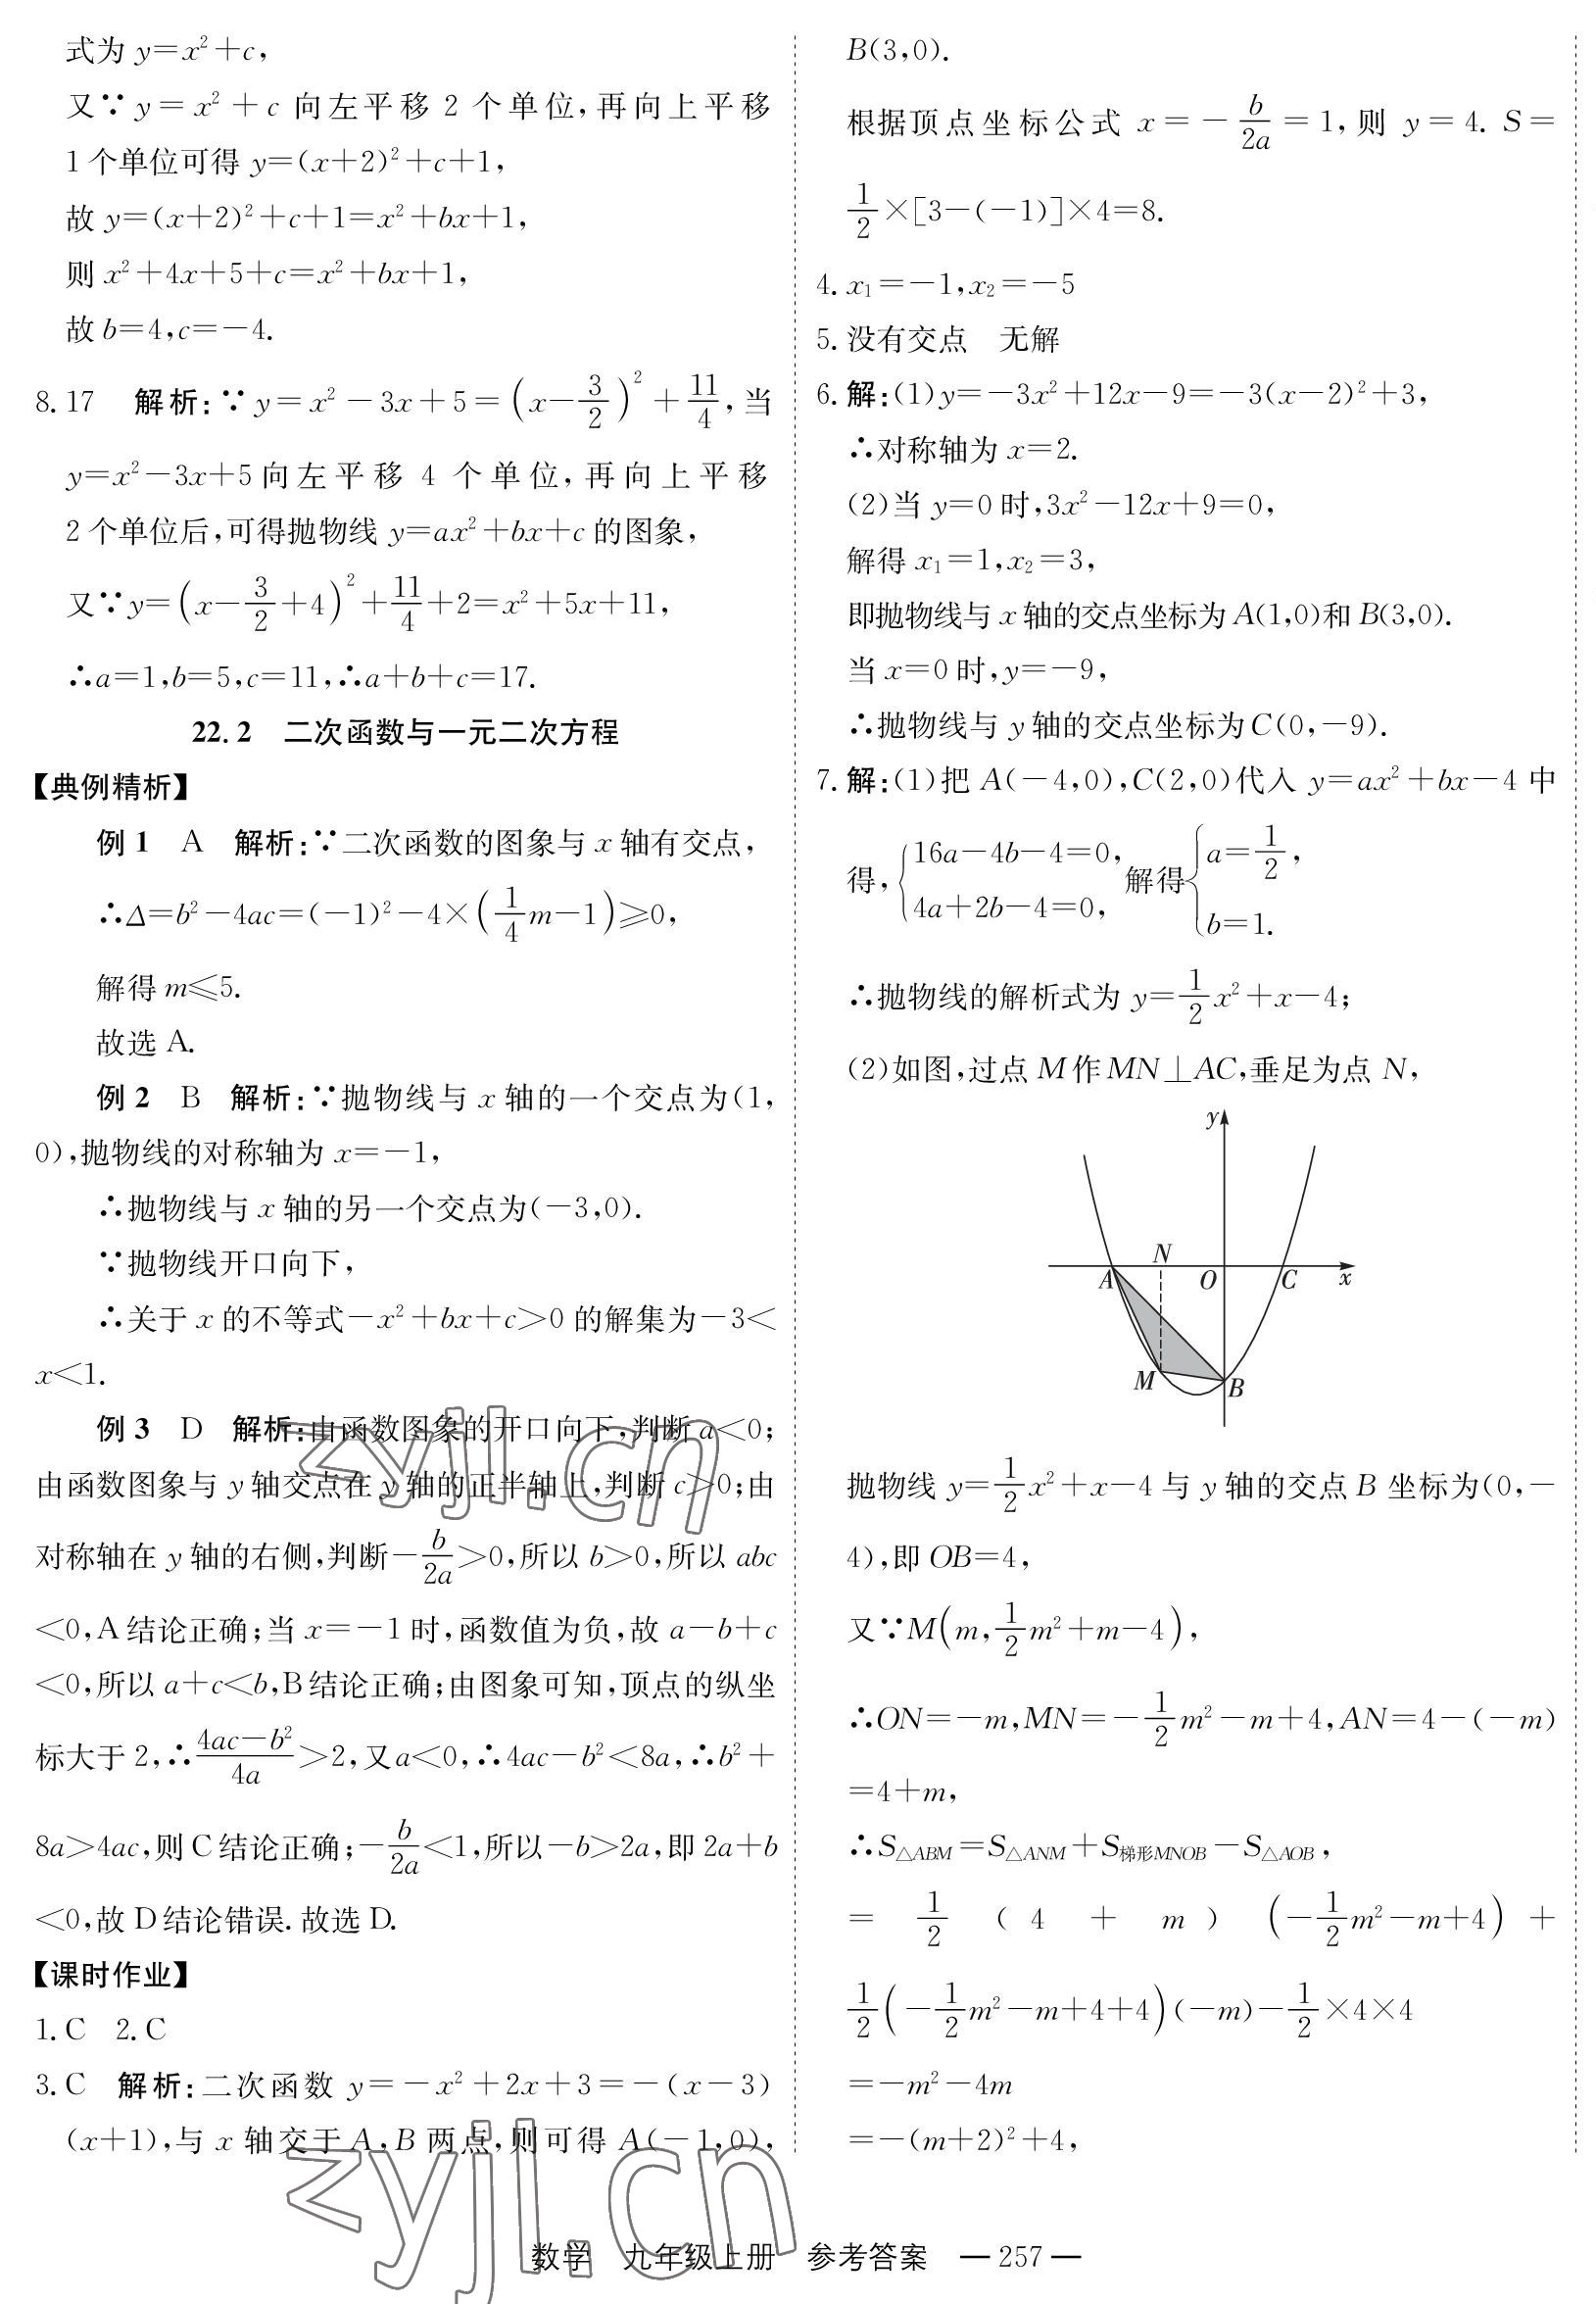 式为 y=x²+c,
又∵y=x²+c 向左平移 2 个单位,再向上平移
1 个单位可得 y=(x+2)²+c+1,
故 y=(x+2)²+c+1=x²+bx+1,
则 x²+4x+5+c=x²+bx+1,
故 b=4,c=-4.
8. 17 解析:∵y=x²-3x+5=(x-3/2)²+11/4,当
y=x²-3x+5 向左平移 4 个单位,再向上平移
2 个单位后,可得抛物线 y=ax²+bx+c 的图象,
又∵y=(x-3/2+4)²+11/4+2=x²+5x+11,
∴a=1,b=5,c=11,∴a+b+c=17.
22.2 二次函数与一元二次方程
【典例精析】
例 1 A 解析:∵二次函数的图象与 x 轴有交点,
∴Δ=b²-4ac=(-1)²-4×(1/4m-1)≥0,
解得 m≤5.
故选 A.
例 2 B 解析:∵抛物线与 x 轴的一个交点为(1,
0),抛物线的对称轴为 x=-1,
∴抛物线与 x 轴的另一个交点为(-3,0).
∵抛物线开口向下,
∴关于 x 的不等式-x²+bx+c>0 的解集为-3<
x<1.
例 3 D 解析:由函数图象的开口向下,判断 a<0;
由函数图象与 y 轴交点在 y 轴的正半轴上,判断 c>0;由
对称轴在 y 轴的右侧,判断-b/2a>0,所以 b>0,所以 abc
<0,A 结论正确;当 x=-1 时,函数值为负,故 a-b+c
<0,所以 a+c<b,B 结论正确;由图象可知,顶点的纵坐
标大于 2,∴(4ac-b²)/4a>2,又 a<0,∴4ac-b²<8a,∴b²+
8a>4ac,则 C 结论正确;-b/2a<1,所以-b>2a,即 2a+b
<0,故 D 结论错误. 故选 D.
【课时作业】
1. C 2. C
3. C 解析:二次函数 y=-x²+2x+3=-(x-3)
(x+1),与 x 轴交于 A,B 两点,则可得 A(-1,0),
B(3,0).
根据顶点坐标公式 x=-b/2a=1,则 y=4. S=
1/2×[3-(-1)]×4=8.
4. x₁=-1,x₂=-5
5. 没有交点 无解
6. 解:(1)y=-3x²+12x-9=-3(x-2)²+3,
∴对称轴为 x=2.
(2)当 y=0 时,3x²-12x+9=0,
解得 x₁=1,x₂=3,
即抛物线与 x 轴的交点坐标为 A(1,0)和 B(3,0).
当 x=0 时,y=-9,
∴抛物线与 y 轴的交点坐标为 C(0,-9).
7. 解:(1)把 A(-4,0),C(2,0)代入 y=ax²+bx-4 中
得,{16a-4b-4=0, 4a+2b-4=0, 解得{a=1/2, b=1.
∴抛物线的解析式为 y=1/2x²+x-4;
(2)如图,过点 M 作 MN⊥AC,垂足为点 N,
y
N
A O C x
M B
抛物线 y=1/2x²+x-4 与 y 轴的交点 B 坐标为(0,-
4),即 OB=4,
又∵M(m,1/2m²+m-4),
∴ON=-m,MN=-1/2m²-m+4,AN=4-(-m)
=4+m,
∴S△ABM=S△ANM+S梯形MNOB-S△AOB,
=1/2(4+m)(-1/2m²-m+4)+
1/2(-1/2m²-m+4+4)(-m)-1/2×4×4
=-m²-4m
=-(m+2)²+4,
zyjl.cn
zyjl.cn
数学 九年级上册 参考答案 — 257 —